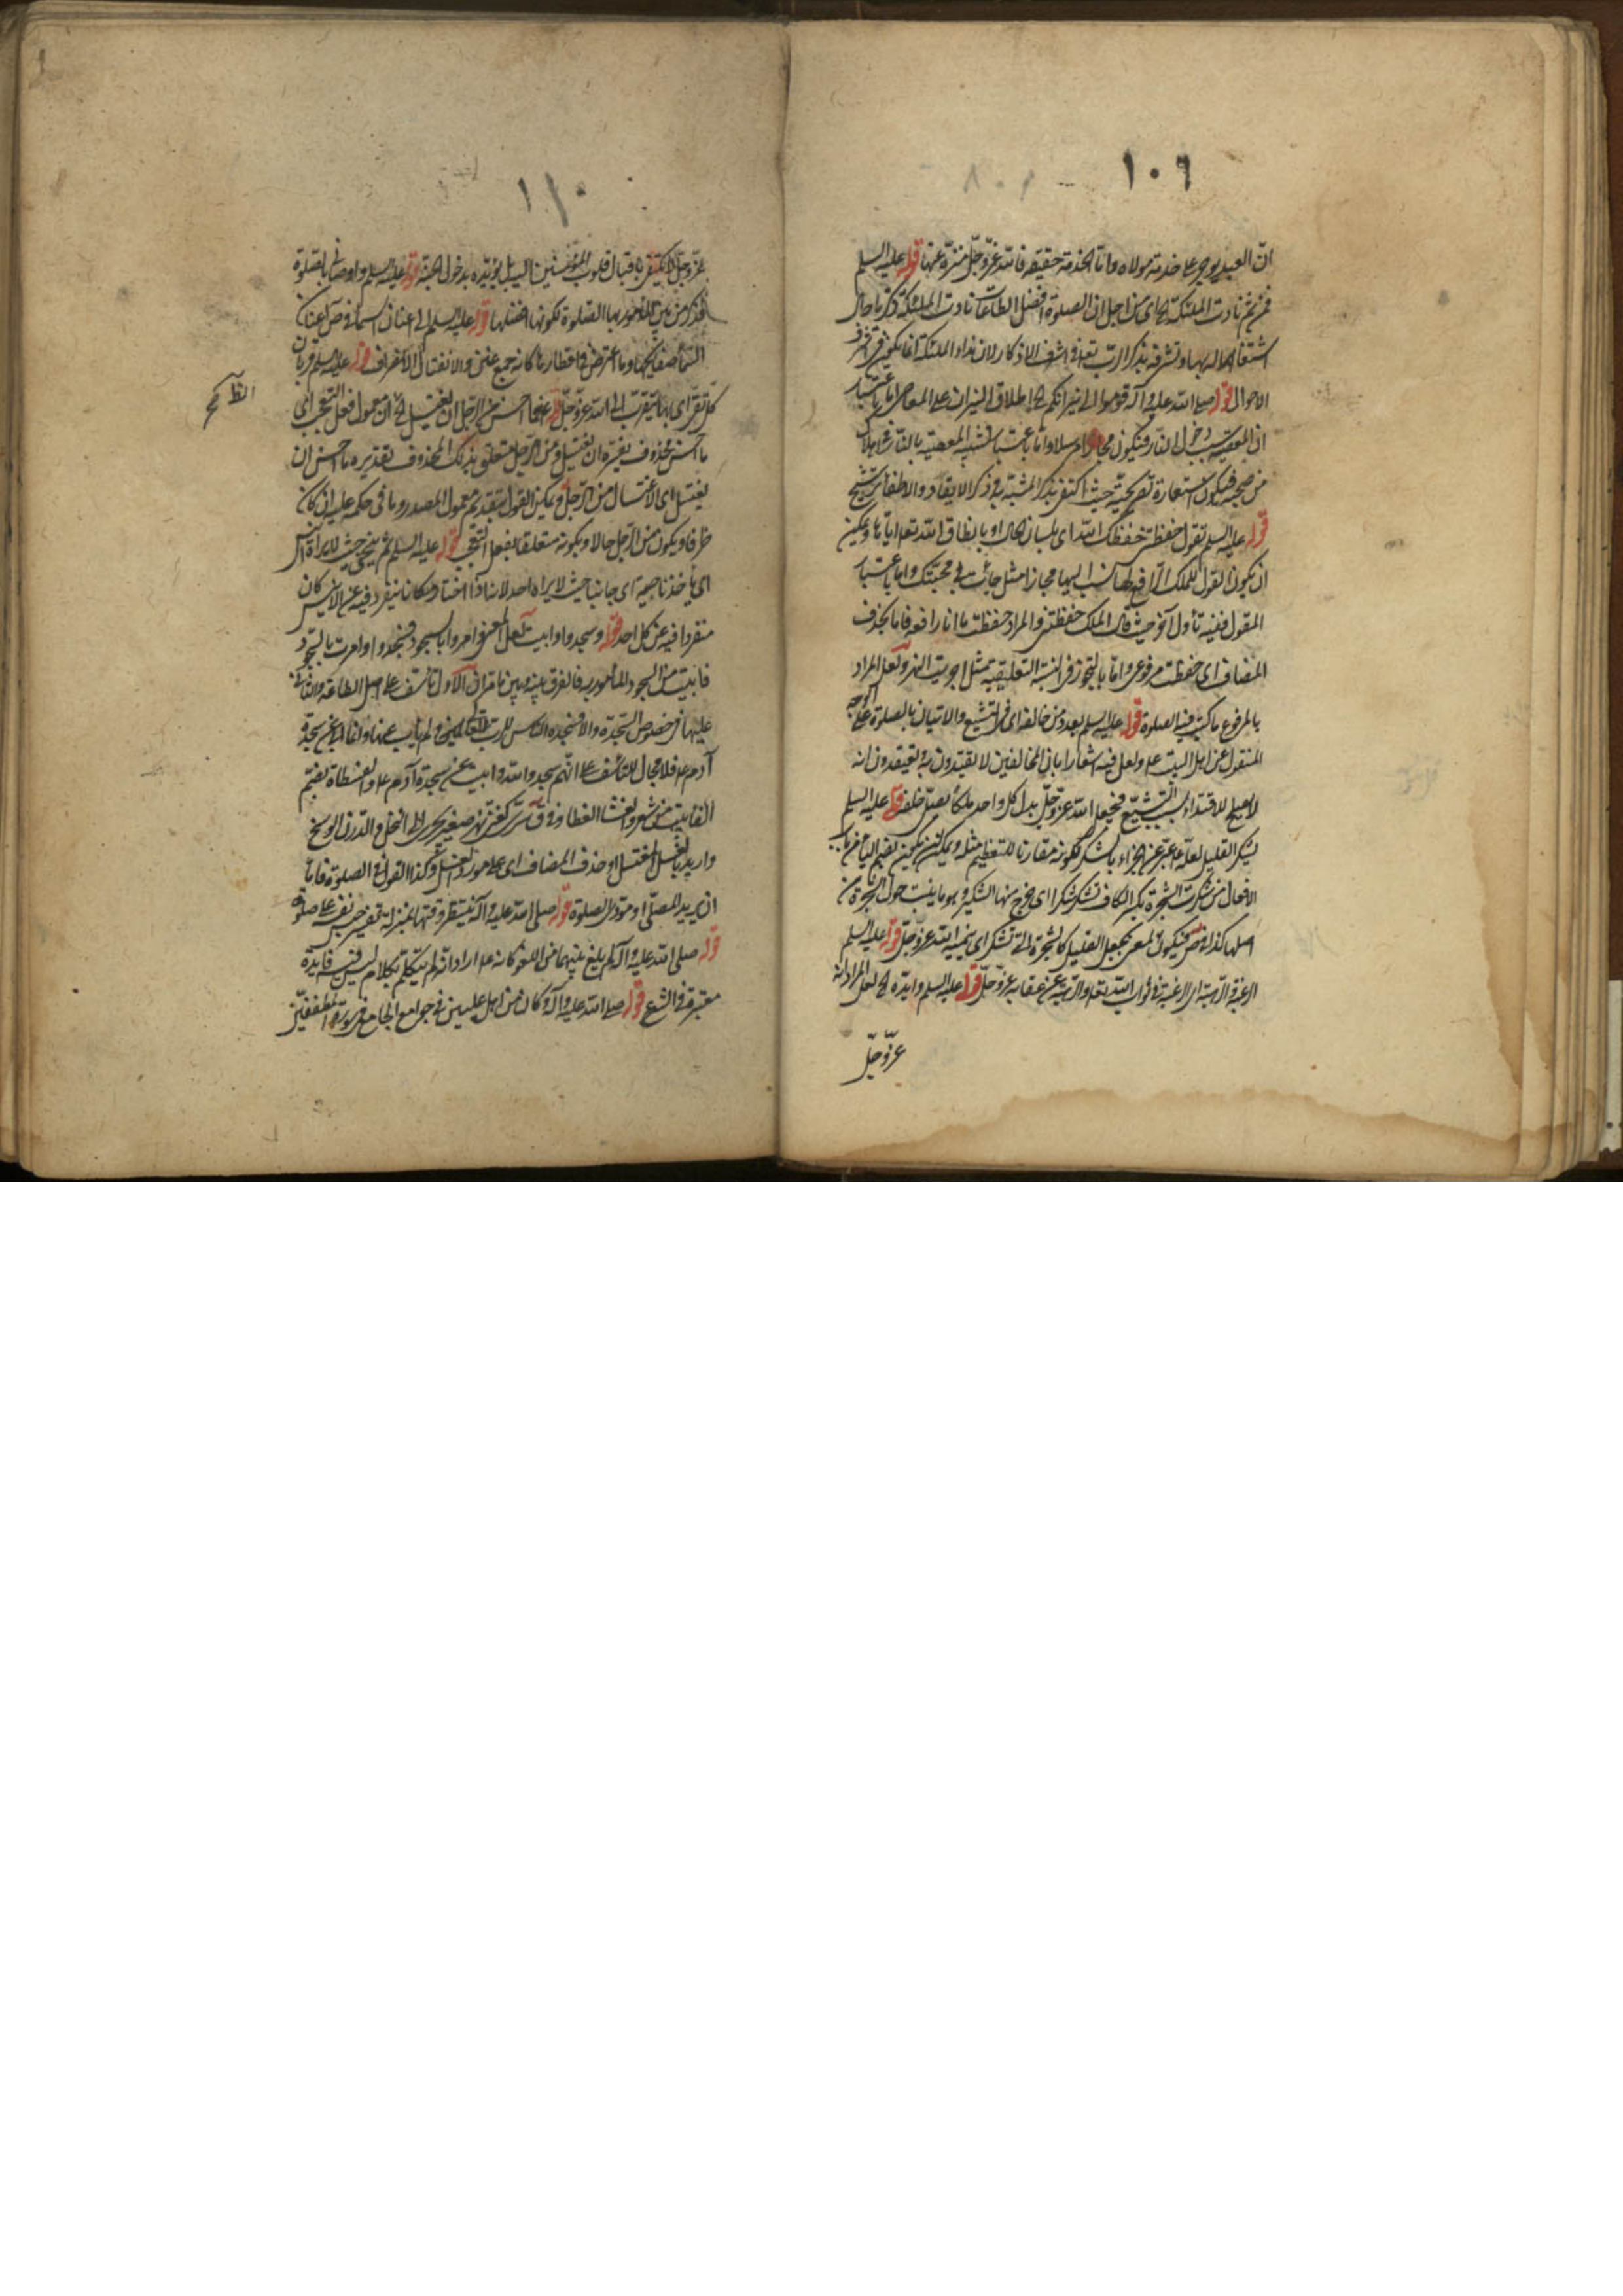 ١٠٦
ان العبد يوجر على خدمة مولاه واما الخدمة حقيقة فالله عز وجل منزه عنها قوله عليه السلم
فمن ثم نادت الملئكة اى من اجل ان الصلوة افضل الطاعات نادت الملئكة
اشتغالهم له بها وتشرفه بذكر الرب تعالى اشرف الاذكار لان نداء الملئكة انما يكون فى اشرف
الاحوال قوله صلى الله عليه وآله قوموا الى نيرانكم اطلاق النيران على المعاصى اما باعتبار
ان المعصية سبب دخول النار فيكون مجازا مرسلا واما باعتبار تشبيه المعصية بالنار فى اهلاك
من صحبه فيكون استعارة تصريحية حيث اكتفى بذكر المشبه به وذكر الايقاد والاطفاء ترشيح
قوله عليه السلم تقول حفظتنى حفظك الله اى بلسان الحال او بانطاق الله تعالى اياها ويمكن
ان يكون القول للملك الرافع لها نسب اليها مجازا مثل جاءت فى محبتك واما باعتبار
المقول ففيه تأول آخر حيث قال الملك حفظتنى والمراد حفظت ما انا رافعه فاما بحذف
المضاف اى حفظت مرفوعى واما بالتجوز فى النسبة التعليقية مثل اجريت النهر ولعل المراد
بالمرفوع ما كتب فيه الصلوة قوله عليه السلم بعدد من خالفه اى فى التشيع والاتيان بالصلوة على الوجه
المنقول عن اهل البيت ع ولعل فيه اشعارا بان المخالفين لا يقتدون به ويعتقدون انه
لا يصلح للاقتداء بسبب التشيع فيجعل الله عز وجل بدل كل واحد ملكا يصلى خلفه قوله عليه السلم
يشكر القليل لعله ع عبر عن الجزاء بالشكر لكونه مقارنا للتعظيم مثله ويمكن ان يكون بضم الياء من باب
الافعال من شكرت الشجرة بكسر الكاف تشكر شكرا اى خرج منها الشكير وهو ما ينبت حول الشجرة من
اصلها كذا فى ص فيكون المعنى يجعل القليل كالشجرة التى تشكر اى ينميه الله عز وجل قوله عليه السلم
الرغبة والرهبة اى الرغبة فى ثواب الله تعالى والرهبة عن عقابه عز وجل قوله عليه السلم وايده لعل المراد انه
عز وجل
١١٠
عز وجل لا يكتفى باقبال قلوب المؤمنين اليه بل يؤيده بدخول الجنة قوله عليه السلم واوصانى بالصلوة
فذكر من بين المأمور بها الصلوة لكونها افضلها قوله عليه السلم الى اعنان السماء فى ص اعنان
السماء صفايحها وما اعترض من اقطارها كانه جمع عنن والانفتال الانحراف قوله عليه السلم قربان
كل تقى اى بها يتقرب الى الله عز وجل قوله ع ما احسن من الرجل ان يغتسل ان معمول فعل التعجب اى
ما احسن محذوف يفسره ان يغتسل ومن الرجل متعلق بذلك المحذوف تقديره ما احسن ان
يغتسل اى الاغتسال من الرجل ويمكن القول بتقديم معمول المصدر وما فى حكمه عليه ان كان
ظرفا ويكون من الرجل حالا ويكونه متعلقا بفعل التعجب قوله عليه السلم ثم يتنحى حيث لا يراه انيس
اى يأخذ ناحية اى جانبا حيث لا يراه احد لانه اذا اختار مكانا ينفرد فيه عن الانيس كان
منفردا فيه عن كل احد قوله وسجدوا وابيت لعل المعنى امروا بالسجود فسجدوا وامرت بالسجود
فابيت من السجود المأمور به فالفرق بينه وبين ما قرأ ان الاول تأسف على اصل الطاعة والثانى
عليها فى خصوص السجدة والا فسجدة الناس للرب تعالى لم ياب عنها وانما ابى عن سجدة
آدم ع فلا مجال للتأسف على انهم سجدوا لله وابيت عن سجدة آدم ع والفسطاط بضم
الفاء بيت من شعر والغشاء الغطاء وفى ق سرى كغنى نهر صغير يجرى الى النخل والدرن الوسخ
واريد بالغسل المغتسل او حذف المضاف اى على مورد الغسل وكذا القول فى الصلوة فاما
ان يريد المصلى او مؤدى الصلوة قوله صلى الله عليه وآله ينتظر وقتها بمنزلة تفسير حبس نفسه على صلوة
قوله صلى الله عليه وآله لم يلغ بينهما من اللغو كانه ع اراد انه لم يتكلم بكلام ليس فيه فايدة
معتبرة فى الشرع قوله صلى الله عليه وآله كان من اهل عليين فى جوامع الجامع فى سورة المطففين